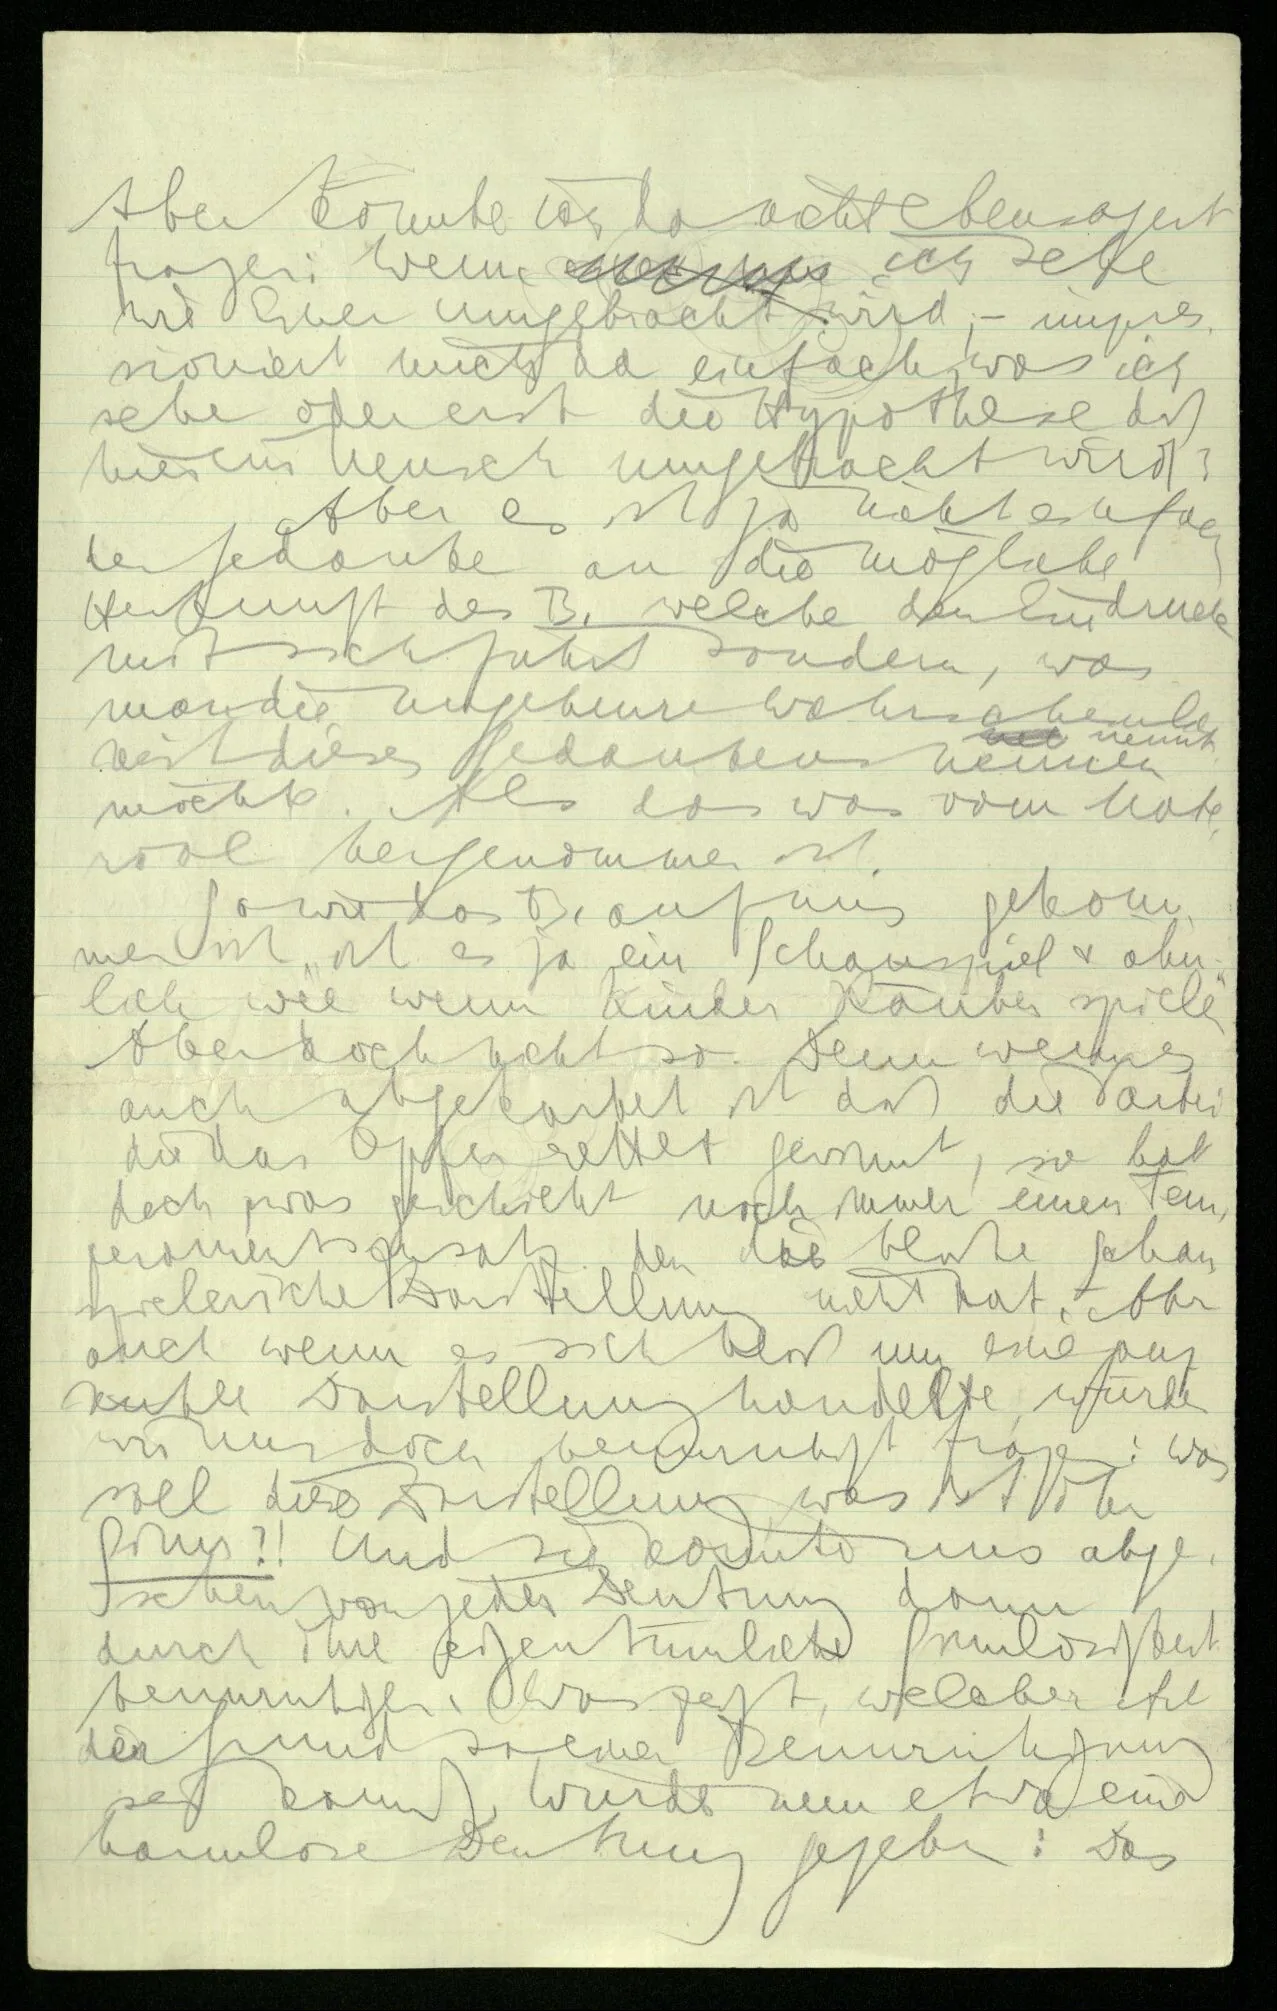 Aber könnte ich da nicht ebensogut
fragen: Wenn ich sehe
wie Einer umgebracht wird, – impres-
sioniert mich da einfach, was ich
sehe oder erst die Hypothese daß
hier ein Mensch umgebracht wird?
Aber es ist ja nicht einfach
der Gedanke an die mögliche
Herkunft des B. welche den Eindruck
mit sich führt sondern, was
man die ungeheure Wahrscheinlich
keit dieses Gedankens nennen nennt
möchte. Als das was vom Mate-
rial hergenommen ist.
So wie das B. auf uns gekom-
men ist, ist es ja ein Schauspiel & ähn-
lich wie wenn Kinder „Räuber spielen“
Aber doch nicht so. Denn wenn es
auch abgekartet ist daß die Partei
die das Opfer rettet gewinnt, so hat
doch was geschieht noch immer einen Tem-
peramentszusatz den die bloße schau-
spielerische Darstellung nicht hat. – Aber
auch wenn es sich bloß um eine ganz
kühle Darstellung handelte, würden
wir uns doch beunruhigt fragen: was
soll diese Darstellung, was ist ihr
Sinn?!! Und sie könnte uns abge-
sehen von jeder Deutung dann
durch ihre eigentümliche Sinnlosigkeit
beunruhigen. (Was zeigt, welcher Art
der Grund so einer Beunruhigung
sein kann.) Würde nun etwa eine
harmlose Deutung gegeben: Das